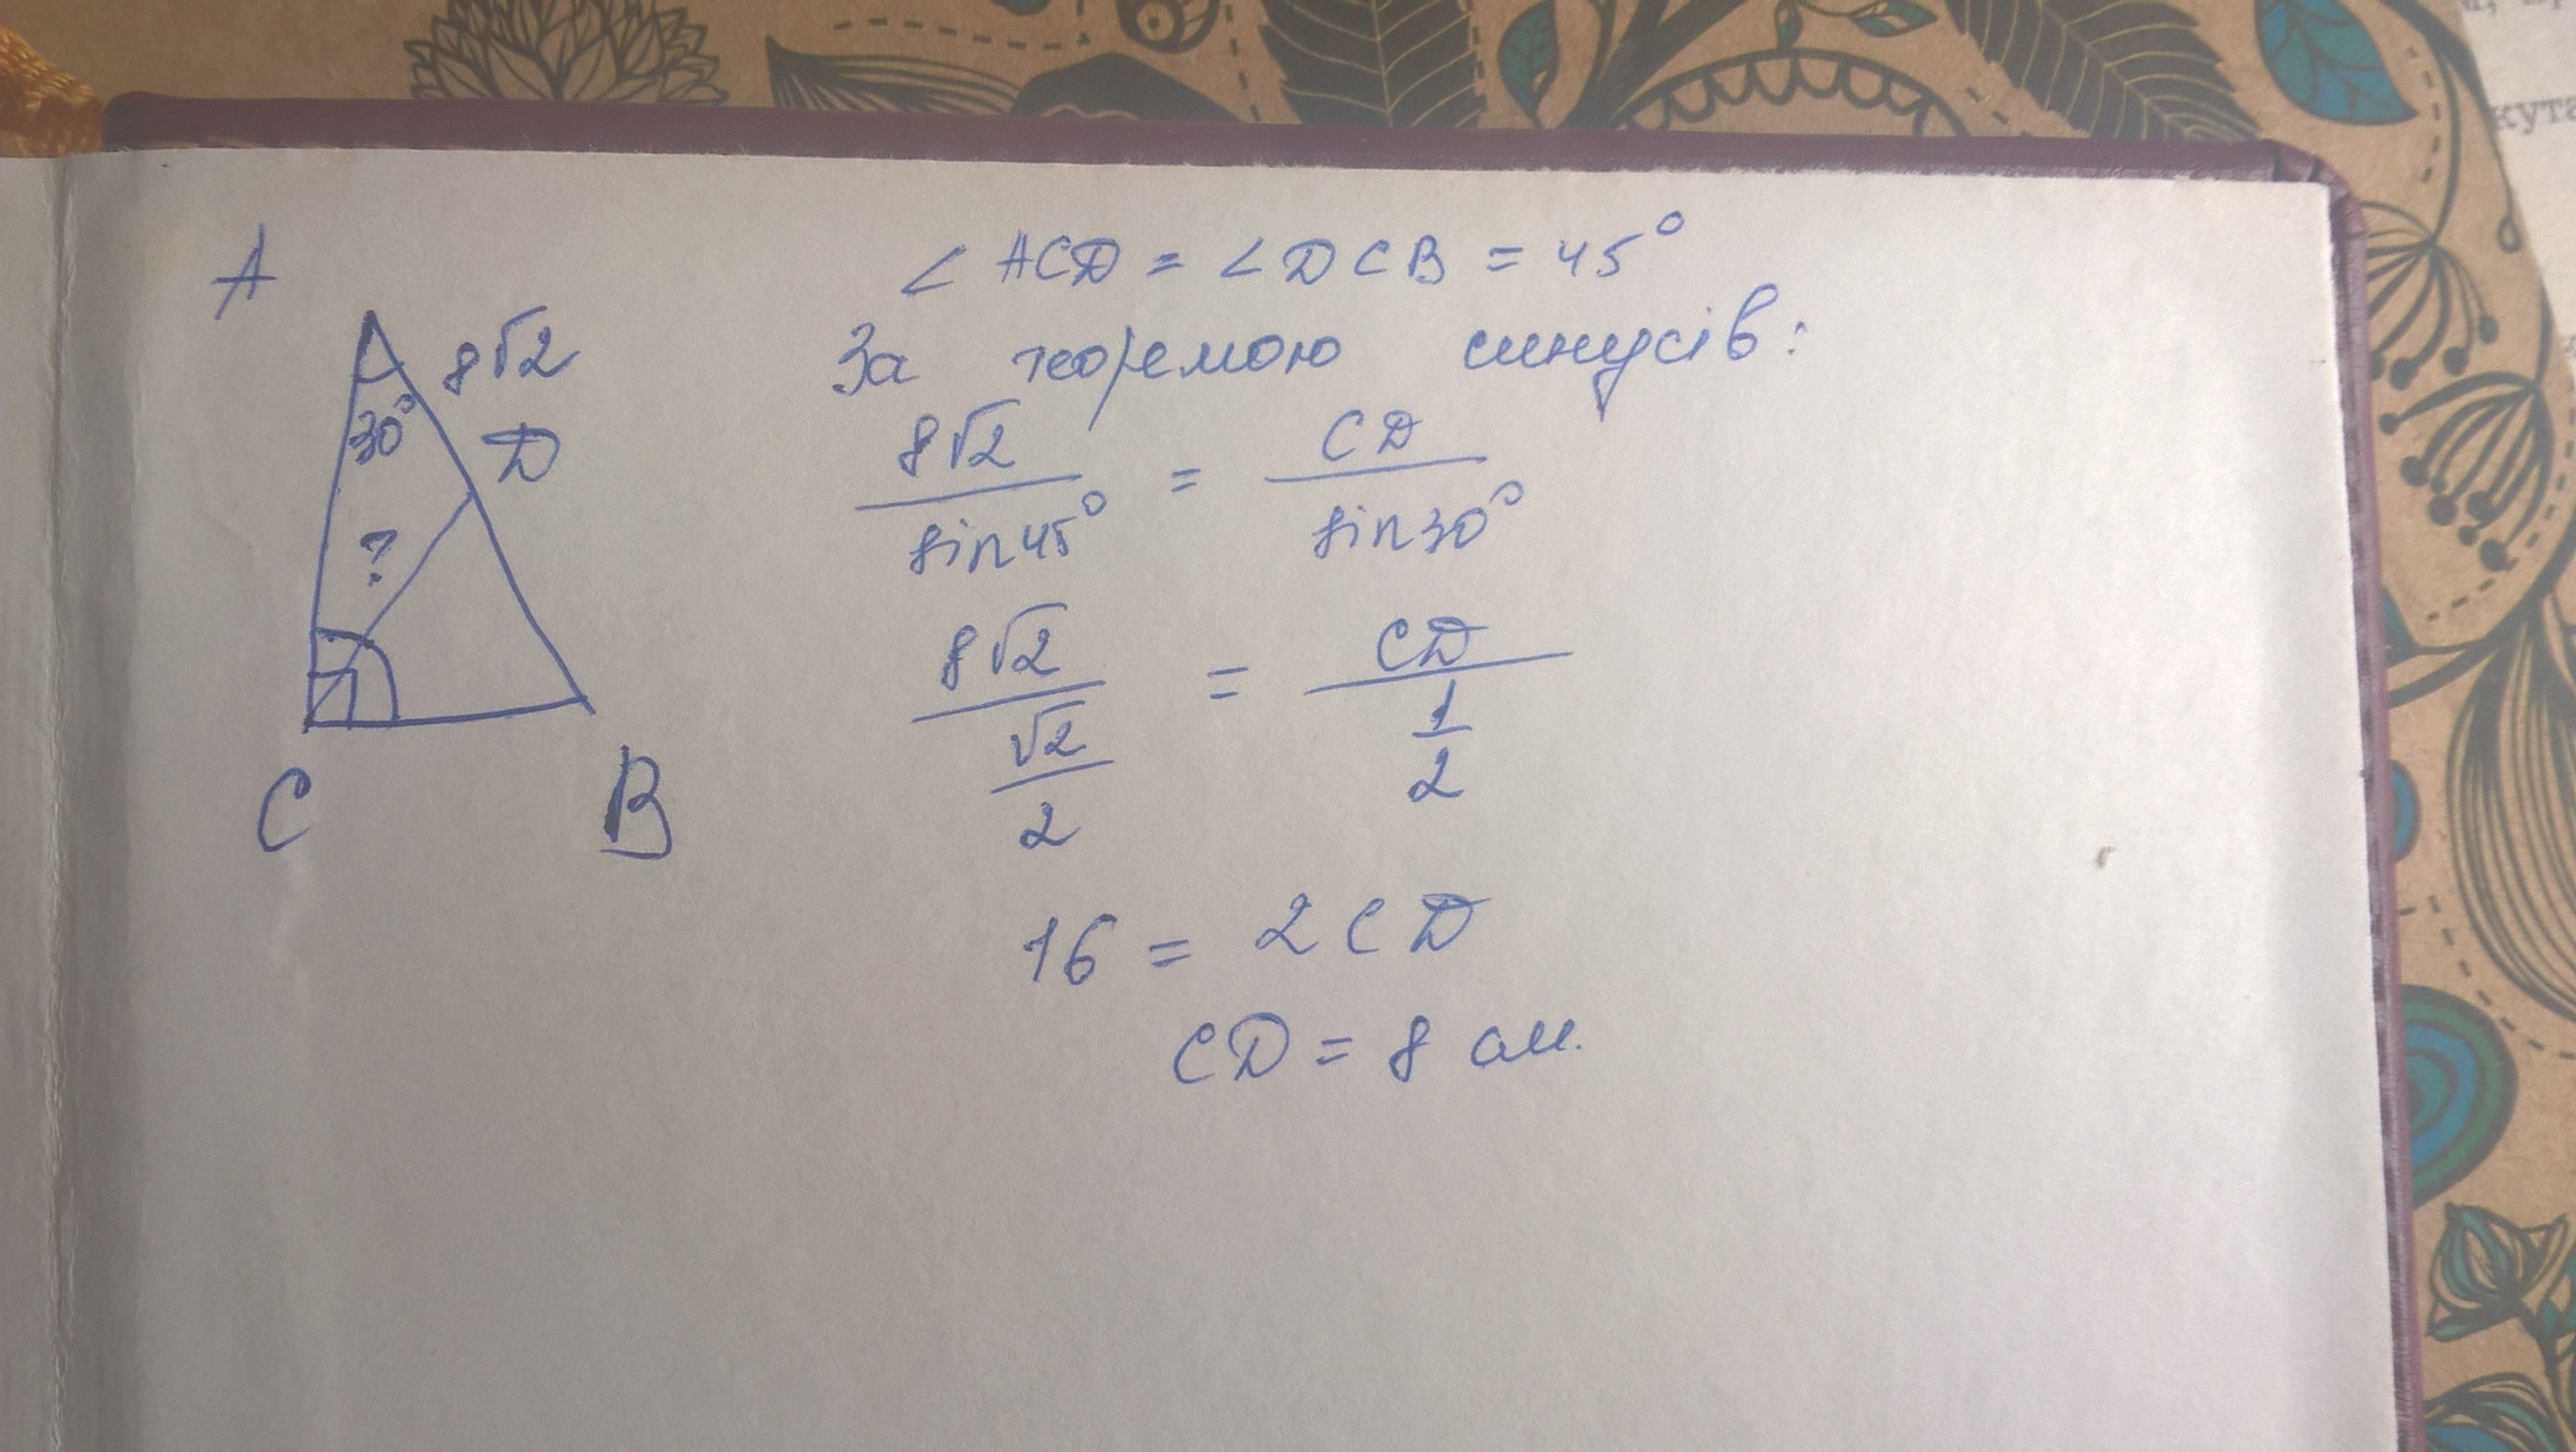 A
8√2
30°
D
?
C
B
∠ ACD = ∠ DCB = 45°
За теоремою синусів:
8√2 / sin45° = CD / sin30°
8√2 / (√2 / 2) = CD / (1 / 2)
16 = 2CD
CD = 8 см.
кута